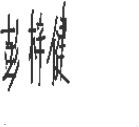 彭梓健